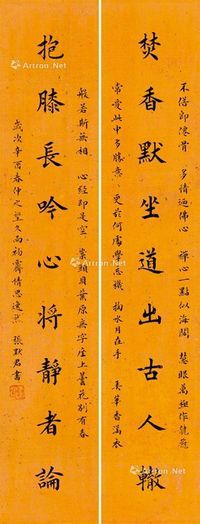 焚香默坐道出古人轍
不俗即仙骨 多情乃佛心 禪心一點似海闊 慧眼萬
常愛此中多勝意 更於何處學忘機 掬水月在手 弄華香滿衣
抱膝長吟心將靜者論
般若斯無相 心經即是空 貝葉原無字 曇花別有春
歲次辛酉春仲之望久雨初霽情思逸
張默君書
Artron.Net
Artron.Net
Artron.Net
Artron.Net